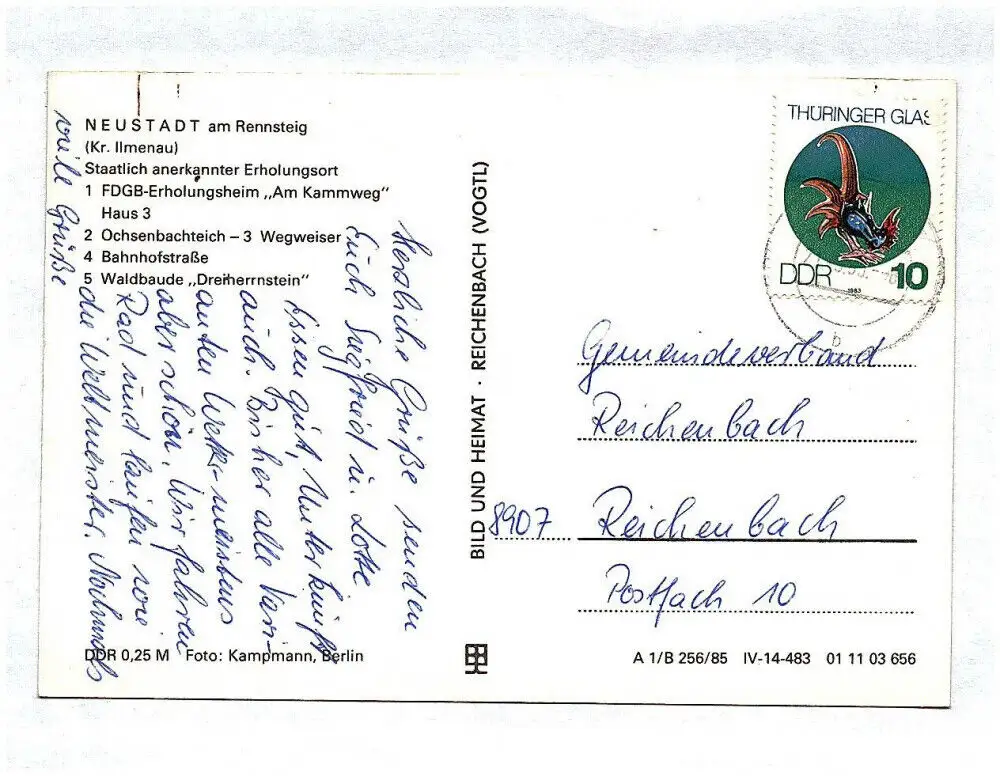 NEUSTADT am Rennsteig
(Kr. Ilmenau)
Staatlich anerkannter Erholungsort
1 FDGB-Erholungsheim „Am Kammweg"
Haus 3
2 Ochsenbachteich – 3 Wegweiser
4 Bahnhofstraße
5 Waldbaude „Dreiherrnstein"
Herzliche Grüße senden
Euch Siegfried u. Lotte.
Essen gut, Unterkunft
auch. Bisher alle Vari-
anten Wetter meistens
aber schön. Wir fahren
Rad und laufen wie
die Weltmeister. Nochmals
viele Grüße
DDR 0,25 M Foto: Kampmann, Berlin
BILD UND HEIMAT · REICHENBACH (VOGTL)
THÜRINGER GLAS
DDR 10
1983
b
Gemeindeverband
Reichenbach
8907 Reichenbach
Postfach 10
A 1/B 256/85 IV-14-483 01 11 03 656